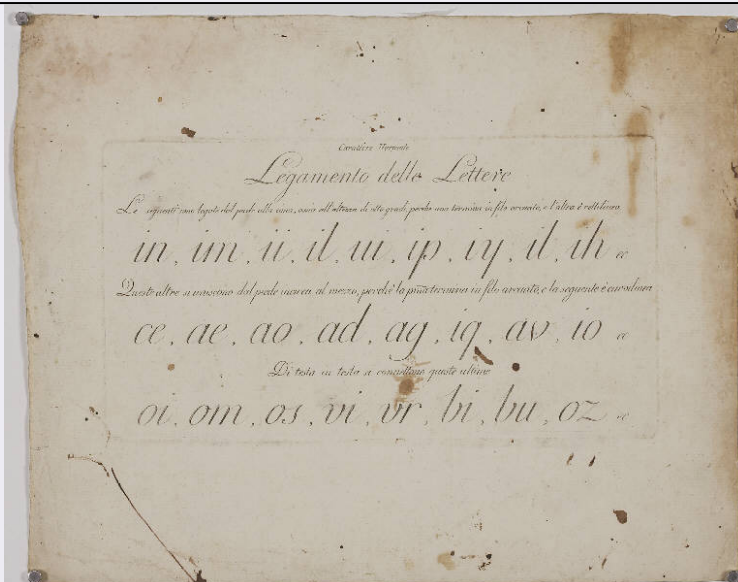 Carattere
Legamento delle Lettere
Le seguenti sono legate dal piede alla cima, ossia all'altezza di otto gradi, perchè una termina in filo arcuato, e l'altra è rettilinea
in, im, ii, il, ui, ip, iy, il, ih ec
Queste altre si uniscono dal piede incirca al mezzo, perchè la prima termina in filo arcuato, e la seguente è curvilinea
ce, ae, ao, ad, ag, iq, av, io ec
Di testa in testa si connettono queste ultime
oi, om, os, vi, vr, bi, bu, oz ec